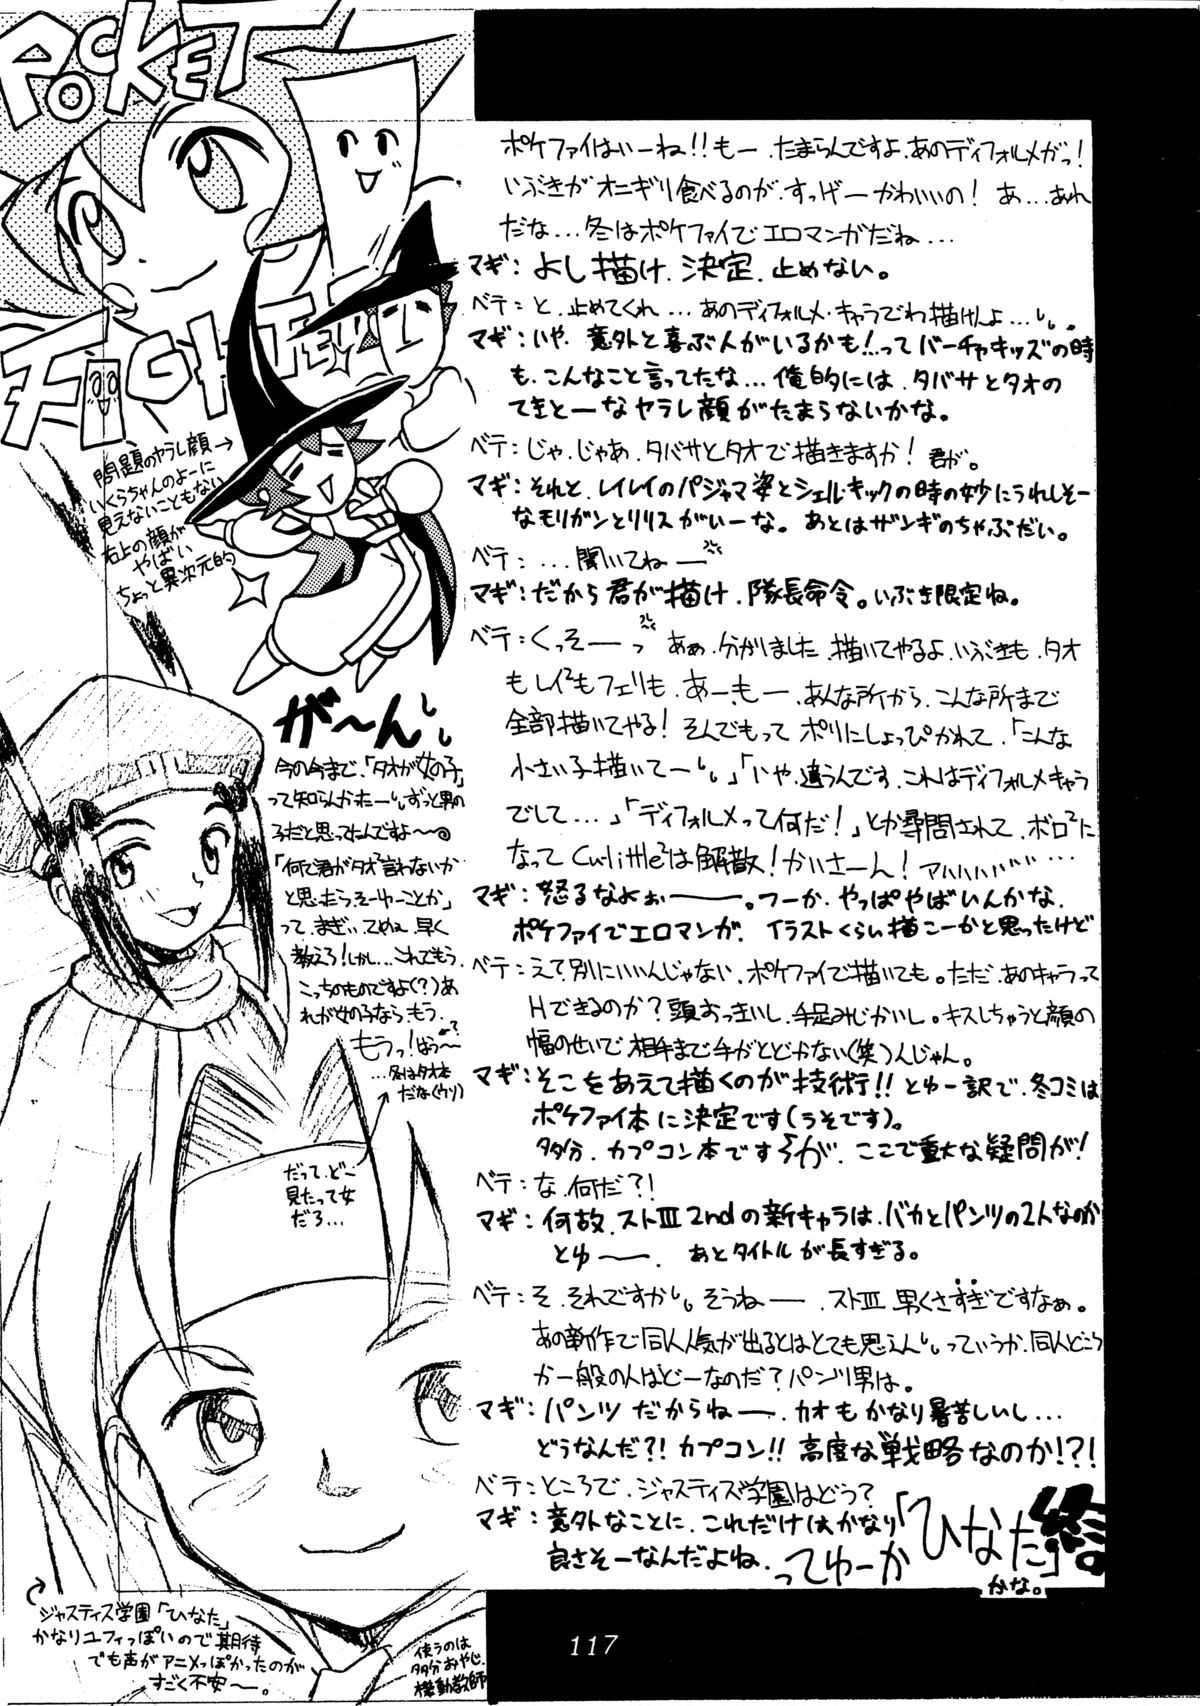 POCKET
FIGHTER
ポケファイはいーね!!もー、たまらんですよ、あのディフォルメがっ!
いぶきがオニギリ食べるのが、すっげーかわいいの! あ…あれ
だな…冬はポケファイでエロマンガだね…
マギ:よし描け、決定、止めない。
ベテ:と、止めてくれ…あのディフォルメ・キャラでわ描けんよ…
マギ:いや、意外と喜ぶ人がいるかも!…ってバーチャキッズの時
も、こんなこと言ってたな…俺的には、タバサとタオの
てきとーなヤラレ顔がたまらないかな。
ベテ:じゃ、じゃあ、タバサとタオで描きますか! 君が。
マギ:それと、レイレイのパジャマ姿とシェルキックの時の妙にうれしそー
なモリガンとリリスがいーな。あとはザンギのちゃぶだい。
ベテ:…聞いてねー
マギ:だから君が描け、隊長命令。いぶき限定ね。
ベテ:くっそーっ あぁ、分かりました、描いてやるよ、いぶきも、タオ
もレイ²もフェリも、あーもー、あんな所から、こんな所まで
全部描いてやる! そんでもって ポリにしょっぴかれて、「こんな
小さい子描いてー」「いや、違うんです、これはディフォルメキャラ
でして…」「ディフォルメって何だ!」とか尋問されて、ボロ²に
なって Cu-little²は解散!かいさーん! アハハハハ…
マギ:怒るなよぉー。つーか、やっぱやばいんかな、
ポケファイでエロマンガ、イラストくらい描こーかと思ったけど
ベテ:えて別にいいんじゃない、ポケファイで描いても。ただ、あのキャラって
Hできるのか?頭おっきいし、手足みじかいし。キスしちゃうと顔の
幅のせいで、相手まで手がとどかない(笑)んじゃん。
マギ:そこをあえて描くのが技術!! とゆー訳で、冬コミは
ポケファイ本に決定です(うそです)。
多分、カプコン本ですが、ここで重大な疑問が!
ベテ:な、何だ?!
マギ:何故、ストⅢ 2ndの新キャラは、バカとパンツの2人なのか
とゆー。あとタイトルが長すぎる。
ベテ:そ、それですか、そうねー、ストⅢ、男くさすぎですなぁ。
あの新作で同人人気が出るとはとても思えんっていうか、同人どころ
か一般の人はどーなのだ?パンツ男は。
マギ:パンツだからねー、カオもかなり暑苦しいし…
どうなんだ?!カプコン!!高度な戦略なのか!?!
ベテ:ところで、ジャスティス学園はどう?
マギ:意外なことに、これだけはかなり
良さそーなんだよね、ってゆーか「ひなた」
かな。
終
問題のヤラレ顔→
いくらちゃんのよーに
見えないこともない
右上の顔が
やばい
ちょっと異次元的
が〜ん
今の今まで、「タオが女の子」
って知らんかったーずっと男の
子だと思ってたんですよ〜
「何で君がタオ²言わないか
と思ったらそーゆーことか」
って、まぎぃ、てめぇ、早く
教えろ!しかし…これでもう、
こっちのものですよ(?)あ
れが女の子なら もう、
もうっ!はぅ〜
…冬はタオ本
だな(ウソ)
だって、どこ
見たって女
だろ…
ジャスティス学園「ひなた」
かなりユフィっぽいので期待
でも声がアニメっぽかったのが
すごく不安〜。
使うのは
多分おやじ、
機動教師
117